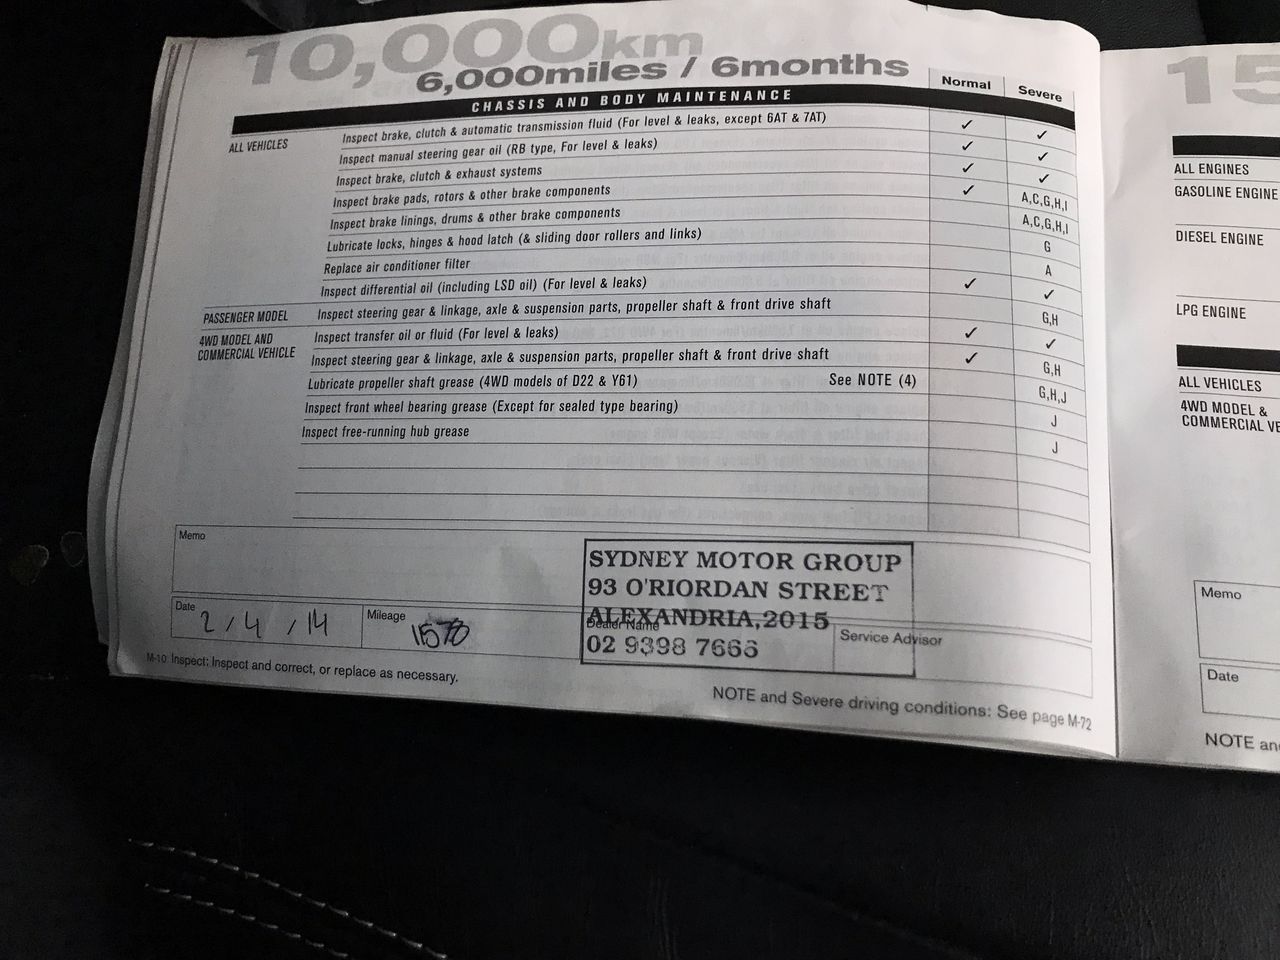 10,000km
6,000miles / 6months
Normal Severe
CHASSIS AND BODY MAINTENANCE
ALL VEHICLES Inspect brake, clutch & automatic transmission fluid (For level & leaks, except 6AT & 7AT) ✓ ✓
Inspect manual steering gear oil (RB type, For level & leaks) ✓ ✓
Inspect brake, clutch & exhaust systems ✓ ✓
Inspect brake pads, rotors & other brake components ✓ A,C,G,H,I
Inspect brake linings, drums & other brake components A,C,G,H,I
Lubricate locks, hinges & hood latch (& sliding door rollers and links) G
Replace air conditioner filter A
Inspect differential oil (including LSD oil) (For level & leaks) ✓ ✓
PASSENGER MODEL Inspect steering gear & linkage, axle & suspension parts, propeller shaft & front drive shaft G,H
4WD MODEL AND COMMERCIAL VEHICLE Inspect transfer oil or fluid (For level & leaks) ✓ ✓
Inspect steering gear & linkage, axle & suspension parts, propeller shaft & front drive shaft ✓ G,H
Lubricate propeller shaft grease (4WD models of D22 & Y61) See NOTE (4) G,H,J
Inspect front wheel bearing grease (Except for sealed type bearing) J
Inspect free-running hub grease J
Memo
SYDNEY MOTOR GROUP
93 O'RIORDAN STREET
ALEXANDRIA, 2015
02 9398 7666
Date 2/4/14 Mileage 11570 Dealer Name Service Advisor
M-10 Inspect: Inspect and correct, or replace as necessary.
NOTE and Severe driving conditions: See page M-72
15
ALL ENGINES
GASOLINE ENGINE
DIESEL ENGINE
LPG ENGINE
ALL VEHICLES
4WD MODEL &
COMMERCIAL VE
Memo
Date
NOTE an